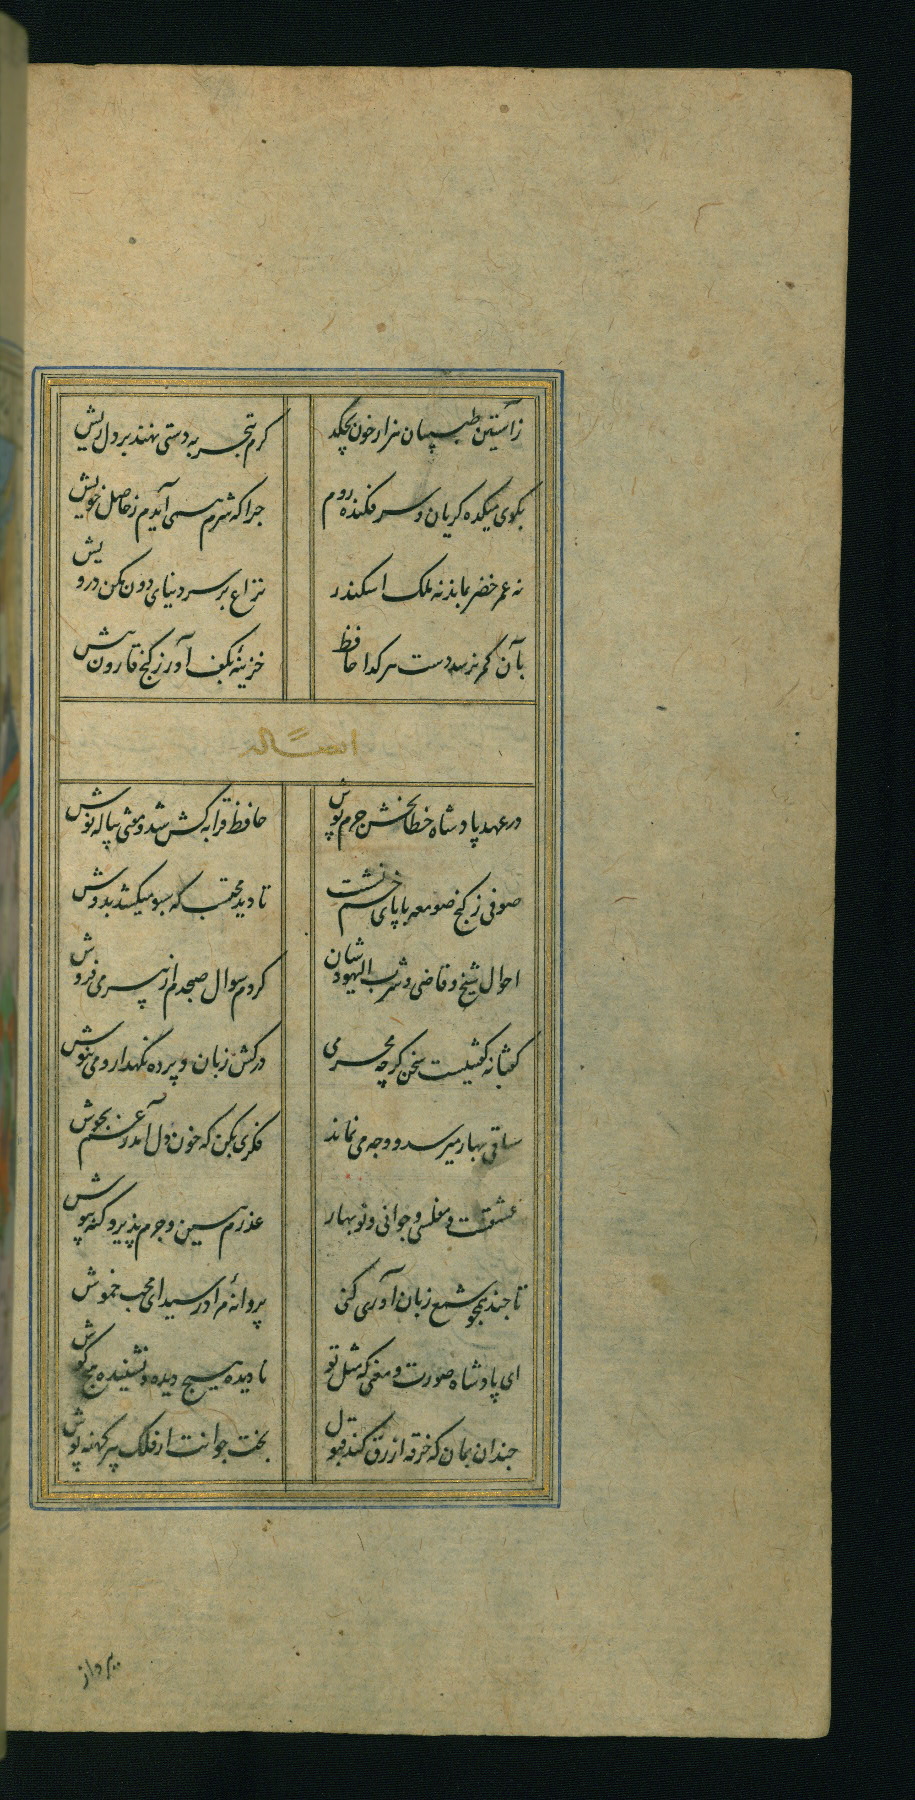 زآستین طبیبان هزار خون بچکد کرم بتجربه دستی نهند بر دل ریش
بکوی میکده کریان و سر فکنده روم جرا که شرم همی آیدم ز حاصل خویش
نه عمر خضر بماند نه ملک اسکندر نزاع بر سر دنیای دون مکن درویش
بآن کمر نرسد دست هر کدا حافظ خزینهٔ بکف آور ز کنج قارون بیش
ایضاً له
در عهد پادشاه خطابخش جرم پوش حافظ قرابه کش شد و مفتی پیاله نوش
صوفی ز کنج صومعه با پای خم نشست تا دید محتسب که سبو میکشد بدوش
احوال شیخ و قاضی و شرب الیهودشان کردم سوال صبحدم از پیر می فروش
کفتا نه کفتنیست سخن کرچه محرمی درکش زبان و پرده نکهدار و می بنوش
ساقی بهار میرسد و وجه می نماند فکری بکن که خون دل آمد ز غم بجوش
عشقست و مفلسی و جوانی و نوبهار عذرم پذیر و جرم بذیل کرم بپوش
تا جند همجو شمع زبان آوری کنی پروانهٔ مراد رسید ای محب خموش
ای پادشاه صورت و معنی که مثل تو نادیده هیچ دیده و نشنیده هیچ کوش
جندان بمان که خرقه ازرق کند قبول بخت جوانت از فلک پیر کهنه پوش